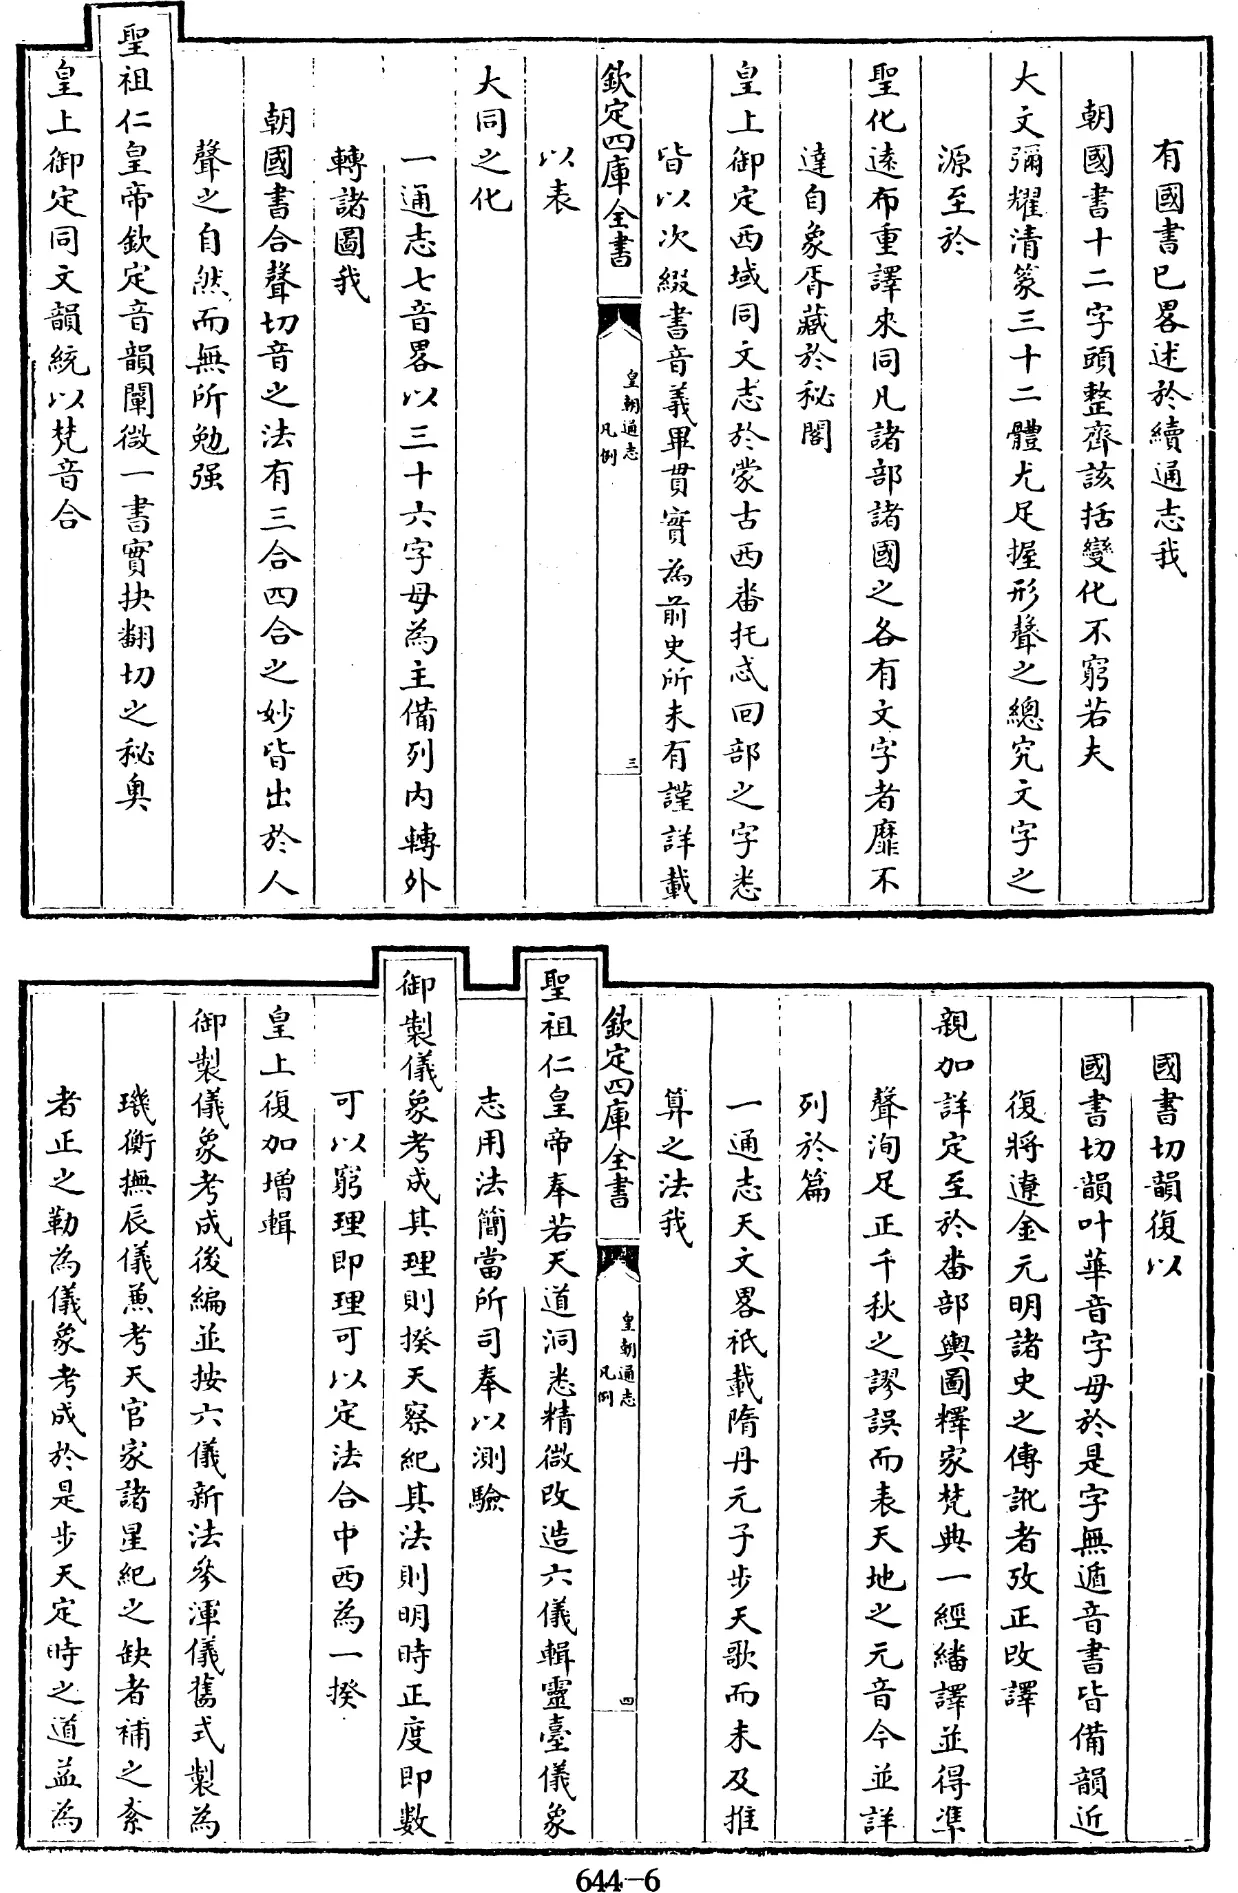 有國書已畧述於續通志我
朝國書十二字頭整齊該括變化不窮若夫
大文彌耀清篆三十二體尤足握形聲之總究文字之
源至於
聖化遠布重譯來同凡諸部諸國之各有文字者靡不
達自象胥藏於秘閣
皇上御定西域同文志於蒙古西番托忒回部之字悉
皆以次綴書音義畢貫實為前史所未有謹詳載
欽定四庫全書
皇朝通志
凡例
三
以表
大同之化
一通志七音畧以三十六字母為主備列内轉外
轉諸圖我
朝國書合聲切音之法有三合四合之妙皆出於人
聲之自然而無所勉强
聖祖仁皇帝欽定音韻闡微一書實抉翻切之秘奥
皇上御定同文韻統以梵音合
國書切韻復以
國書切韻叶華音字母於是字無遁音書皆備韻近
復將遼金元明諸史之傳訛者攷正改譯
親加詳定至於番部輿圖釋家梵典一經繙譯並得準
聲洵足正千秋之謬誤而表天地之元音今並詳
列於篇
一通志天文畧衹載隋丹元子步天歌而未及推
算之法我
欽定四庫全書
皇朝通志
凡例
四
聖祖仁皇帝奉若天道洞悉精微改造六儀輯靈臺儀象
志用法簡當所司奉以測驗
御製儀象考成其理則揆天察紀其法則明時正度即數
可以窮理即理可以定法合中西為一揆
皇上復加増輯
御製儀象考成後編並按六儀新法參渾儀舊式製為
璣衡撫辰儀兼考天官家諸星紀之缺者補之紊
者正之勒為儀象考成於是步天定時之道益為
644-6